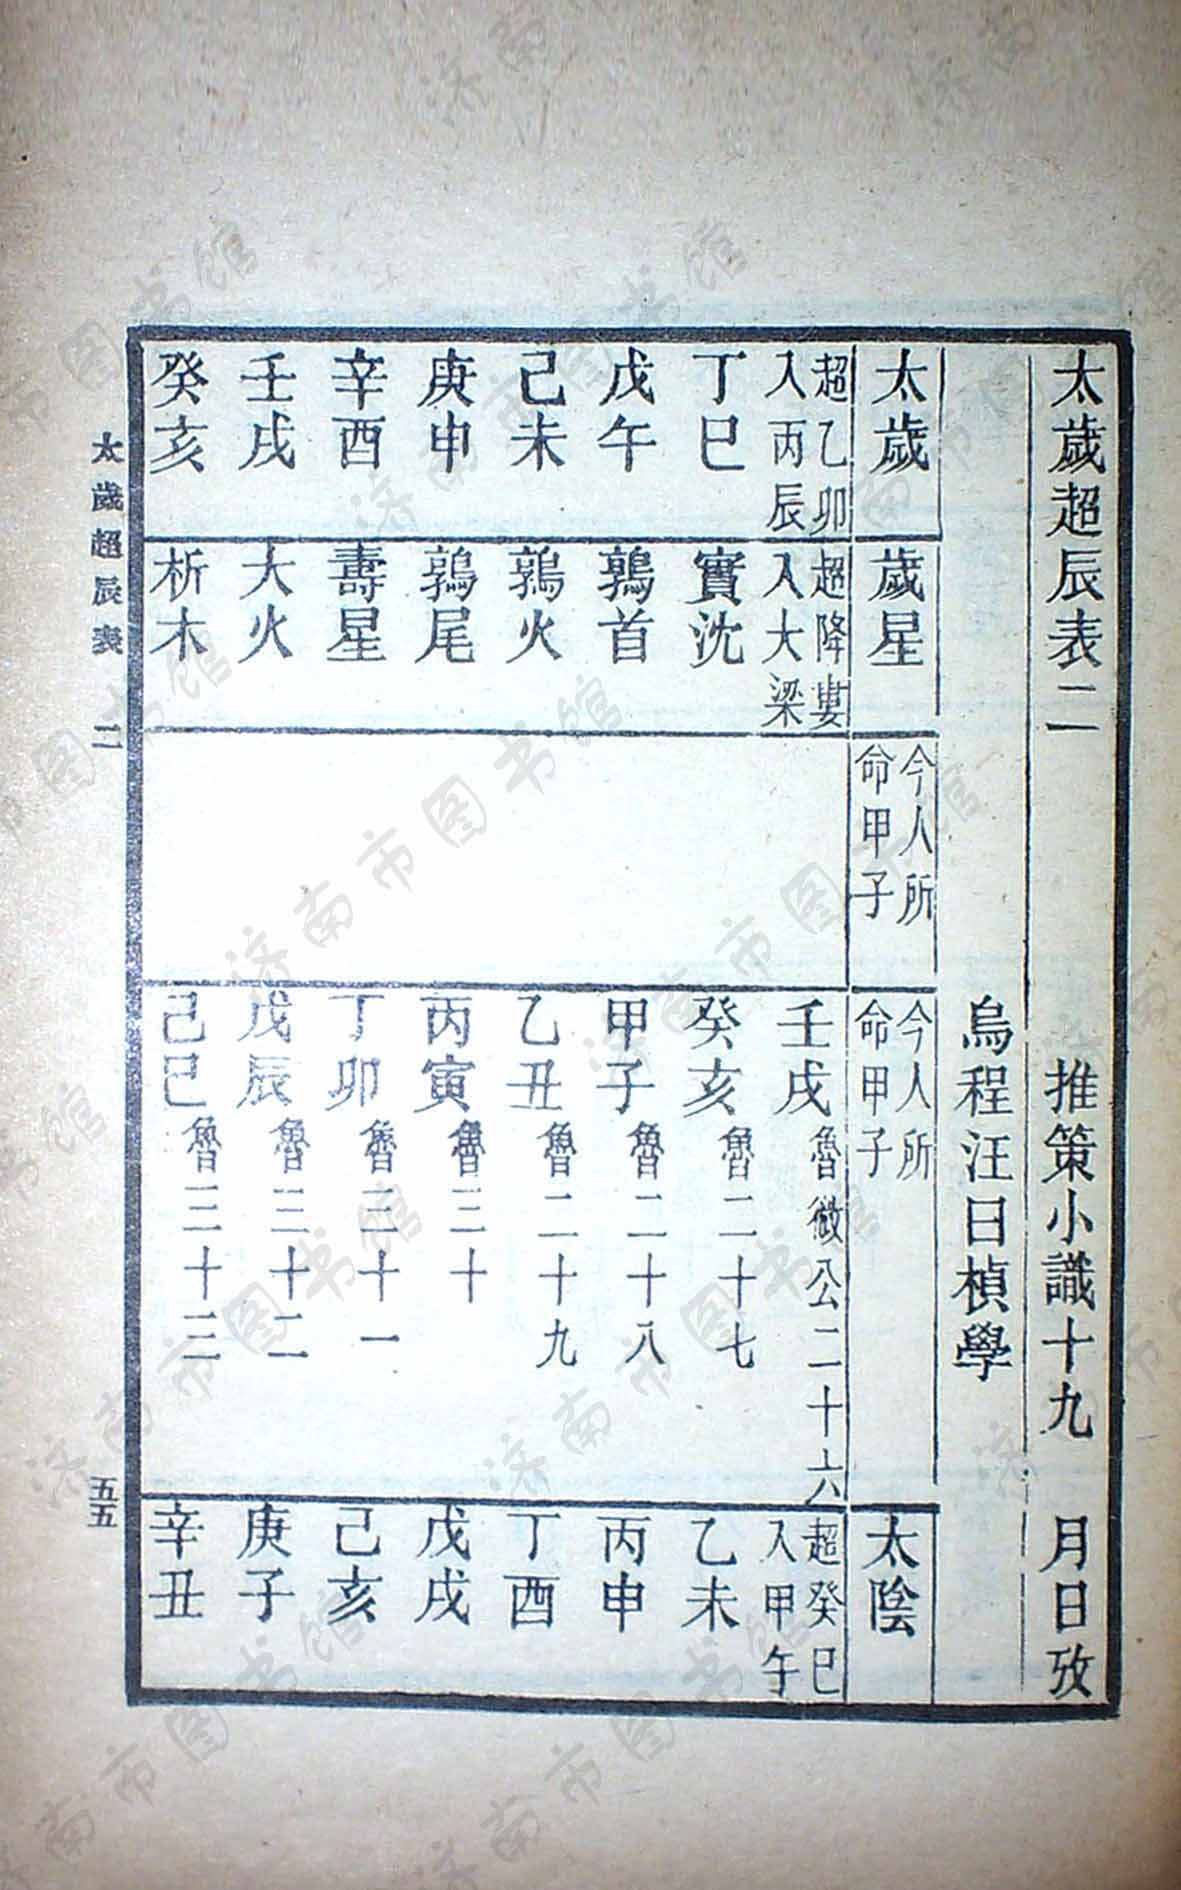 太歲超辰表二　推策小識十九　月日攷
烏程汪曰楨學
太歲　歲星　今人所命甲子　今人所命甲子　太陰
超乙卯入丙辰　超降婁入大梁　壬戌魯微公二十六　超癸巳入甲午
丁巳　實沈　癸亥魯二十七　乙未
戊午　鶉首　甲子魯二十八　丙申
己未　鶉火　乙丑魯二十九　丁酉
庚申　鶉尾　丙寅魯三十　戊戌
辛酉　壽星　丁卯魯三十一　己亥
壬戌　大火　戊辰魯三十二　庚子
癸亥　析木　己巳魯三十三　辛丑
太歲超辰表　二　五五
济南市图书馆